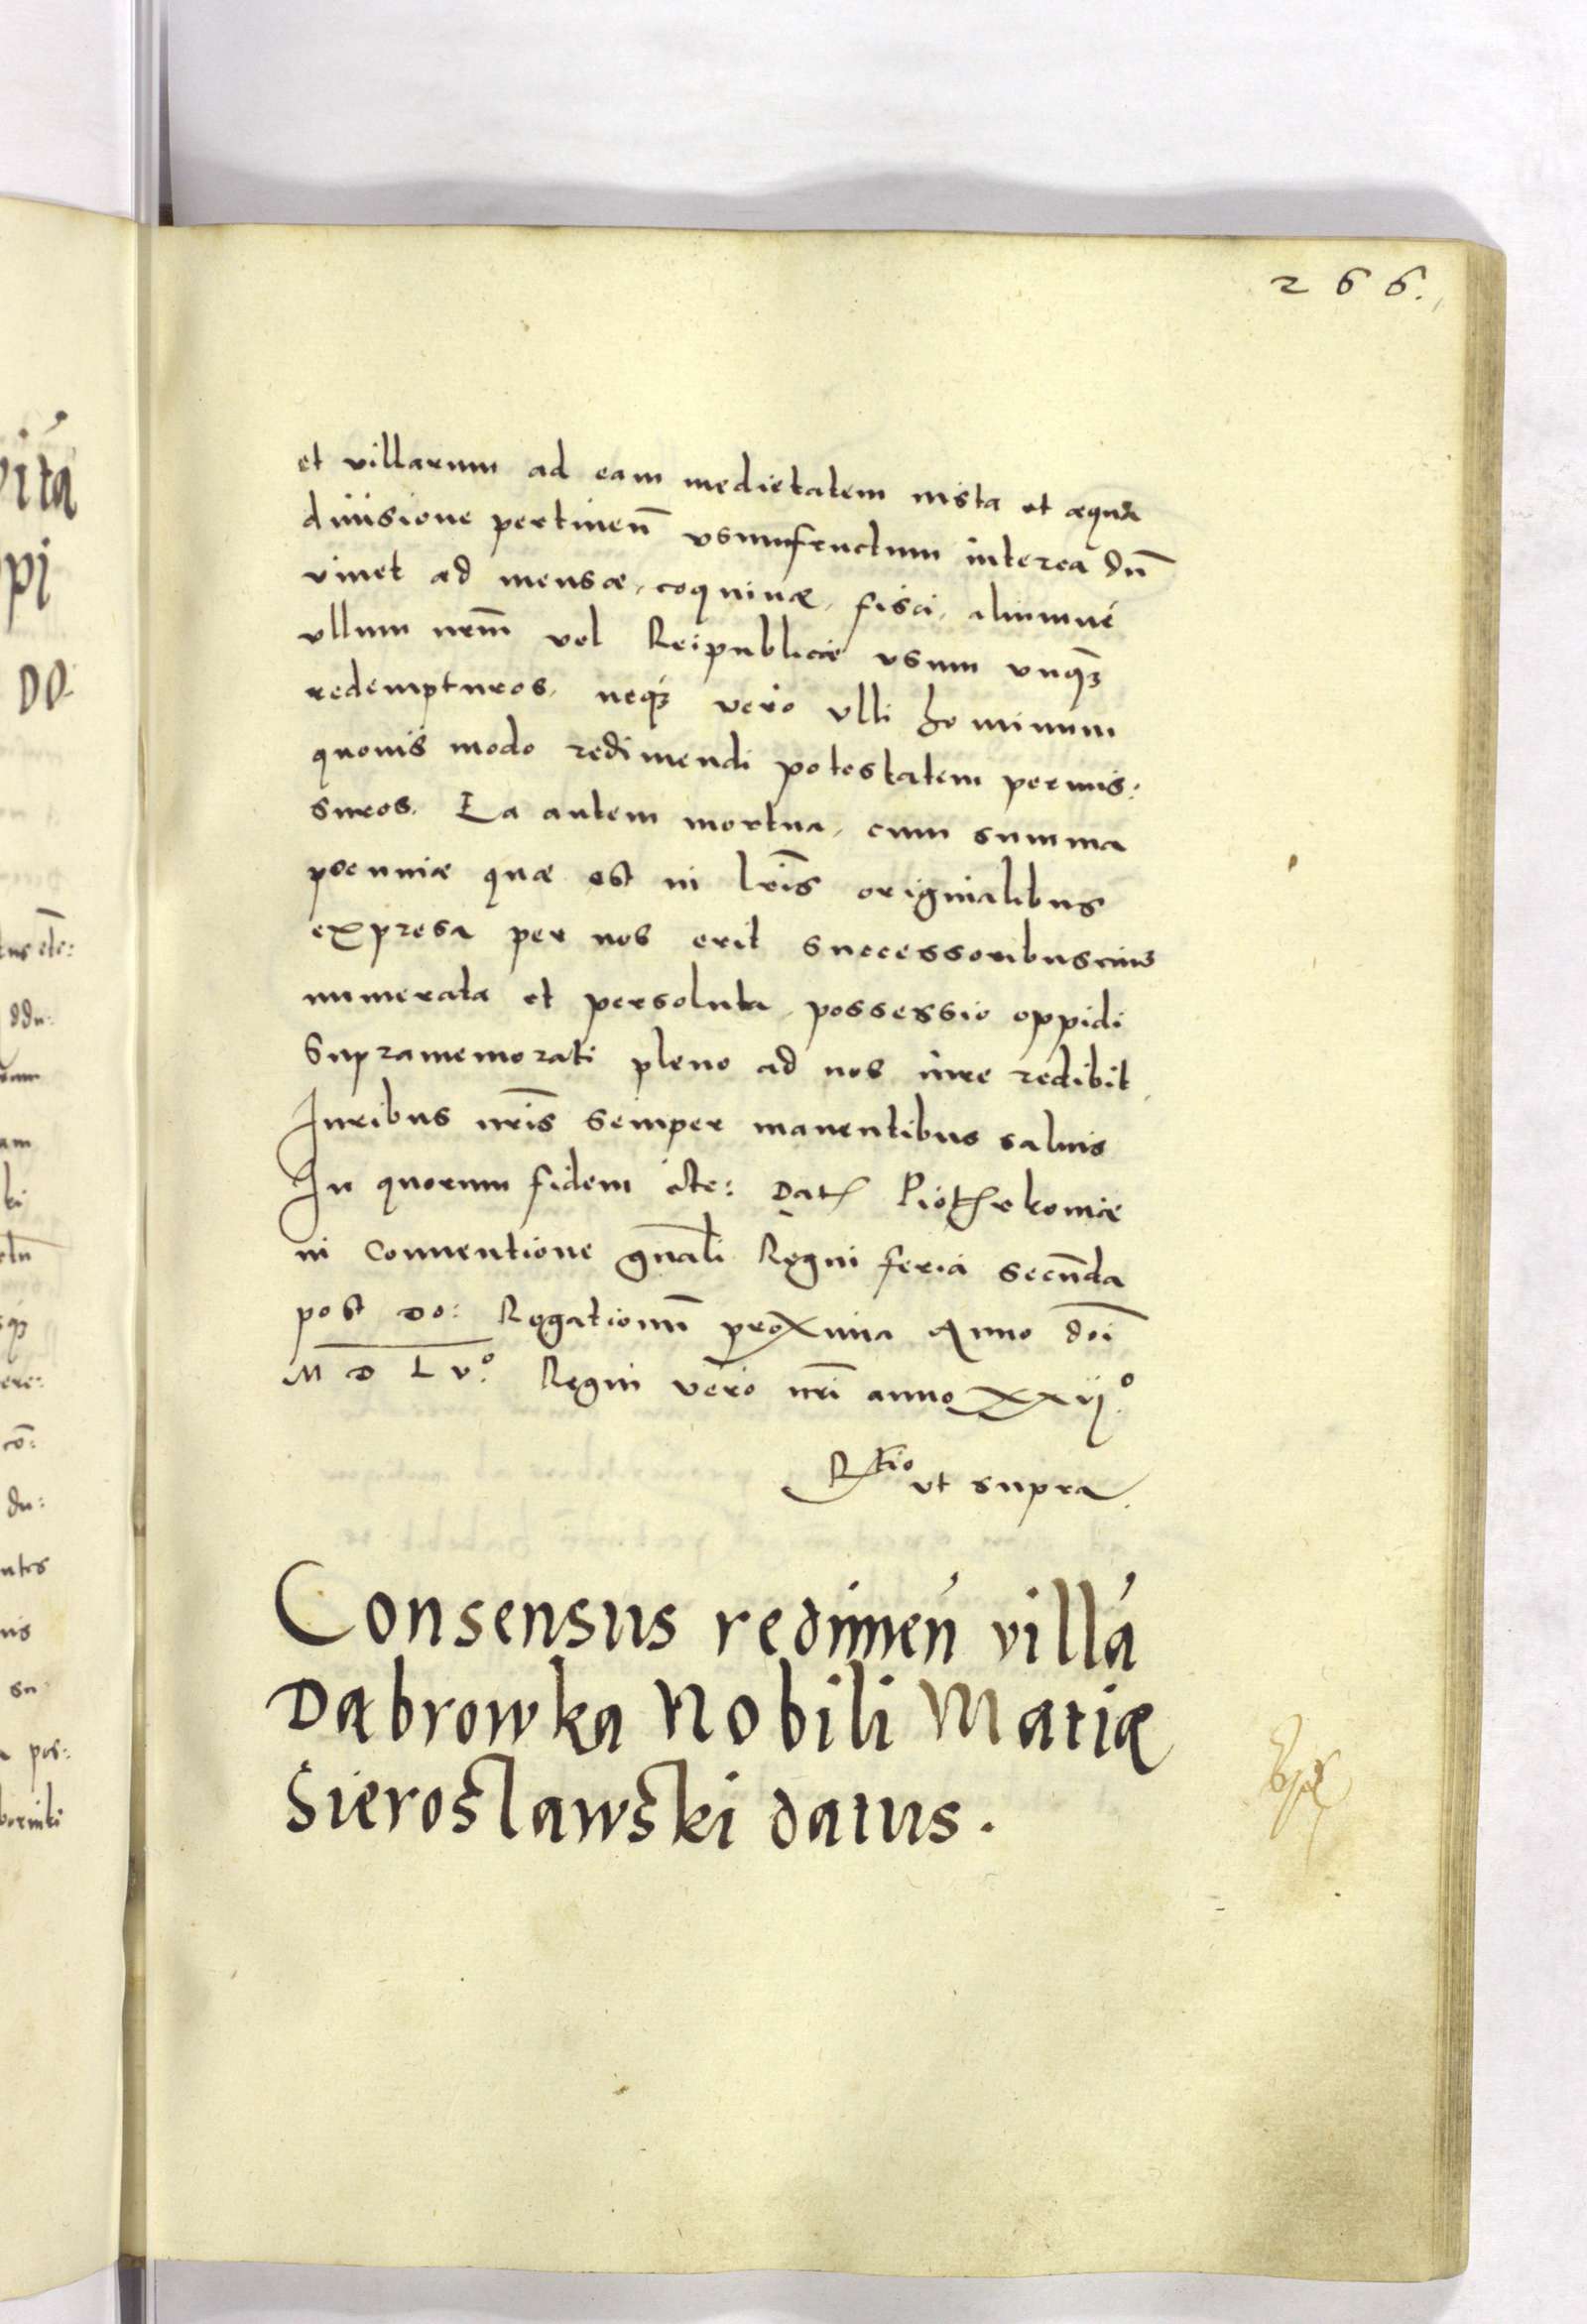 266.
et villarum ad eam medietatem iusta et æqua
diuisione pertineñ vsumfructum interea dũ
viuet ad mensæ, coquinæ, fisci, aliumué
vllum nr̃m vel Reipublicæ vsum vnqꝫ
redempturos, neqꝫ vero vlli hominum
quouis modo redimendi potestatem permis:
suros. Ea autem mortua, cum summa
pecuniæ quæ est in lr̃is originalibus
expresa per nos erit successoribus eius
numerata et persoluta, possessio oppidi
supramemorati pleno ad nos iure redibit,
Iuribus nr̃is semper manentibus saluis
In quorum fidem etc: Dat Piotrkouiæ
in Conuentione gñali Regni feria secũda
post Do: Rogationũ proxima Anno dñi
M D L vº. Regni vero nr̃i anno xxvjº.
Rtio ut supra.
Consensus redimeń villá
Dąbrowka Nobili Matiæ
Sierosławski datus.